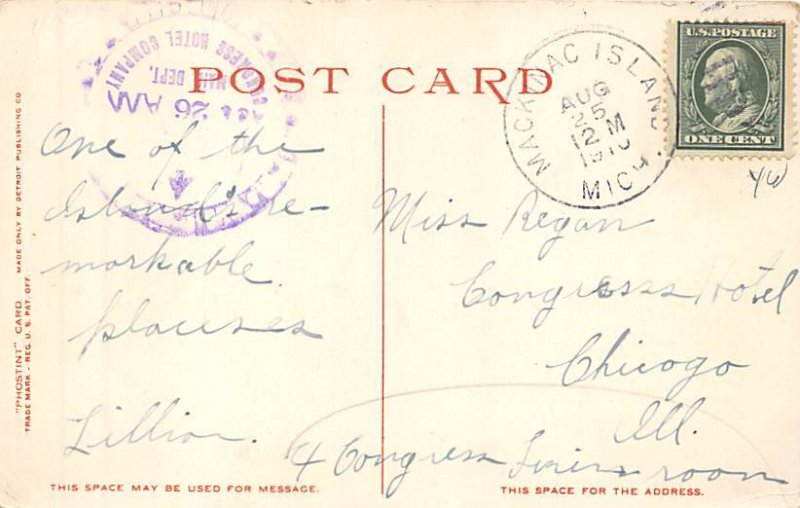 POST CARD
CONGRESS HOTEL COMPANY
MAIL DEPT.
26 AM
MACKINAC ISLAND
AUG
25
12 M
1910
MICH.
U.S. POSTAGE
ONE CENT
One of the
Island's re-
markable
placeses
Lillian.
Miss Regan
Congress Hotel
Chicago
Ill.
4 Congress Linen room
"PHOSTINT" CARD MADE ONLY BY DETROIT PUBLISHING CO.
TRADE MARK - REG. U. S. PAT. OFF.
THIS SPACE MAY BE USED FOR MESSAGE.
THIS SPACE FOR THE ADDRESS.